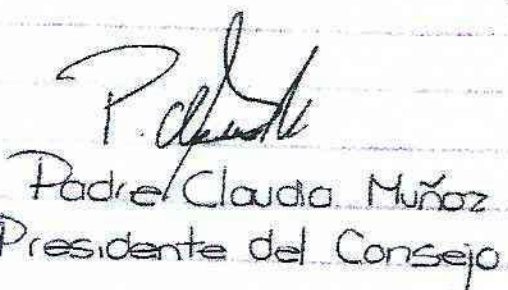 Padre Claudio Muñoz
Presidente del Consejo